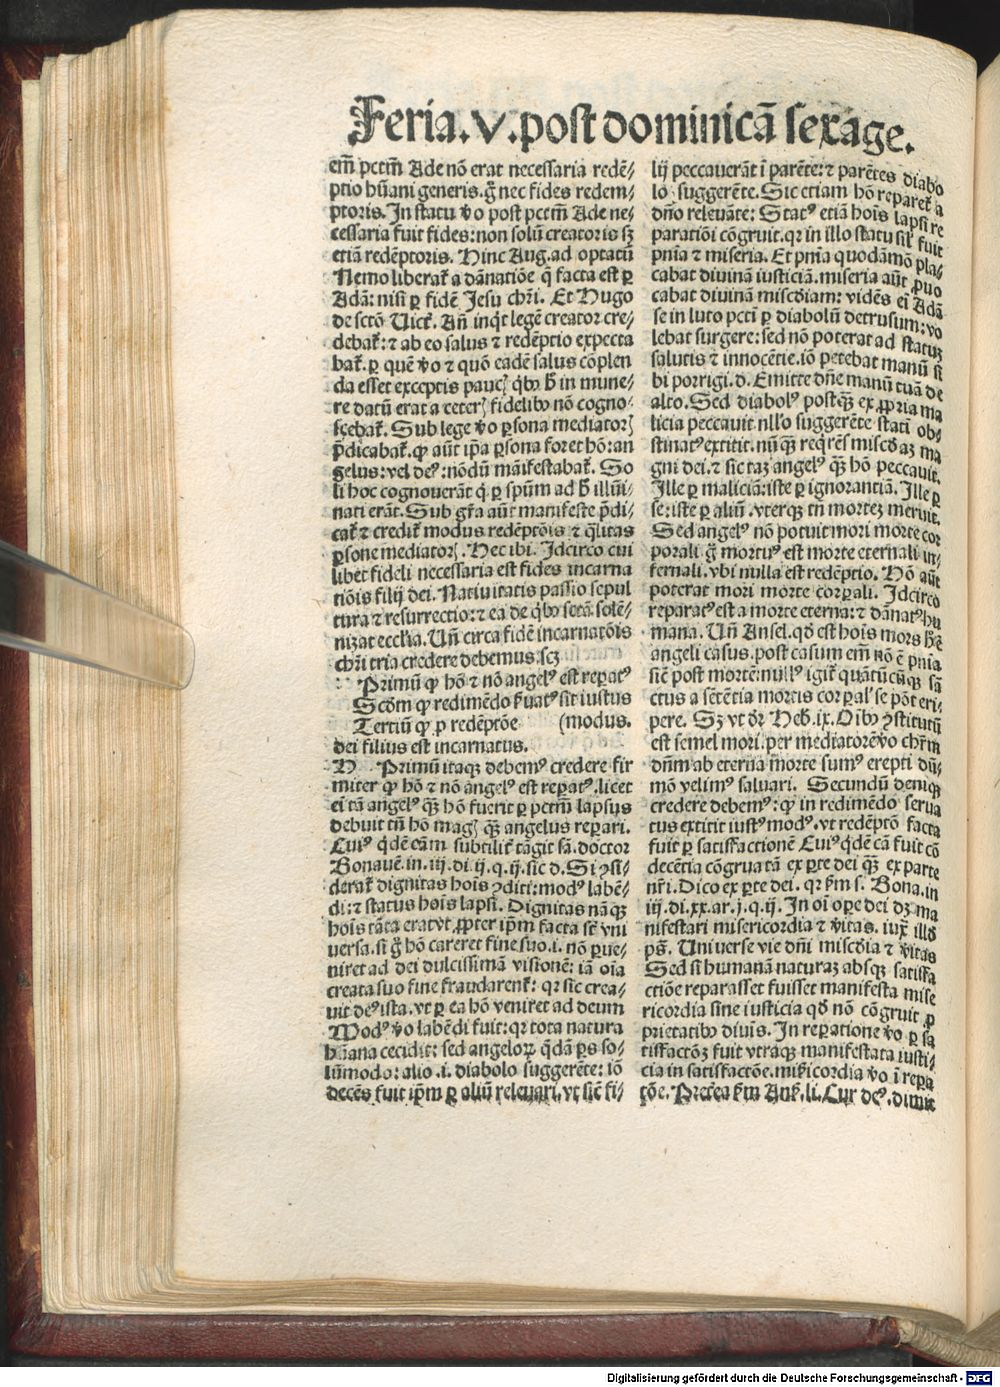 Feria.v.post dominicā sexage.
em̄ pctm̄ Ade nō erat necessaria redē⸗
ptio hūani generis.g̊ nec fides redem⸗
ptoris. In statu v̊o post pctm̄ Ade ne⸗
cessaria fuit fides:non solū creatoris sꝫ
etiā redēptoris. Hinc Aug.ad optatū
Nemo liberat᷑ a dānatiōe q̄ facta est ꝑ
Adā: nisi ꝑ fidē Jesu chr̄i. Et Hugo
de sctō Uict᷑. Añ inq̇t legē creator cre⸗
debat᷑: ⁊ ab eo salus ⁊ redēptio expecta
bat᷑. ꝑ quē v̊o ⁊ quō eadē salus cōplen
da esset exceptis pauc̛ q̇bꝰ h̄ in mune⸗
re datū erat a ceter̛ fidelibꝰ nō cogno⸗
scebat᷑. Sub lege v̊o ꝑsona mediator̛
p̄dicabat᷑. ꝙ aūt ip̄a ꝑsona foret hō: an
gelus: vel deꝰ: nōdū māifestabat᷑. So
li hoc cognouerāt q̇ ꝑ spūm ad h̄ illūi⸗
nati erāt. Sub gr̄a aūt manifeste p̄di⸗
cat᷑ ⁊ credit᷑ modus redēptōis ⁊ q̄litas
ꝑsone mediator̛. Hec ibi. Idcirco cui
libet fideli necessaria est fides incarna
tiōis filij dei. Natiuitatis passio sepul
tura ⁊ resurrectio: ⁊ ea de q̇bꝰ setā solē⸗
nizat ecclia. Uñ circa fidē incarnatōis
chr̄i tria credere debemus.scꝫ
Primū ꝙ hō ⁊ nō angelꝰ est repatꝰ
Scd̄m ꝙ redimēdo s̄uatꝰ sit iustus
Tertiū ꝙ ꝓ redēptōe (modus.
dei filius est incarnatus.
Primū itaqꝫ debemꝰ credere fir
miter ꝙ hō ⁊ nō angelꝰ est repatꝰ. licet
ei tā angelꝰ qꝫ hō fuerit ꝑ pctm̄ lapsus
debuit tn̄ hō mag̛ qꝫ angelus repari.
Cuiꝰ q̇dē cām subtilit᷑ tāgit sā.doctor
Bonauē.in.iii.di.ij.q.ij.sic d. Si ꝯsi⸗
derat᷑ dignitas hoīs ꝯditi: modꝰ labē⸗
di: ⁊ status hoīs lapsi. Dignitas nāqꝫ
hoīs tāta erat vt ꝓpter ip̄m facta sīt vni
uersa. si g̊ hō careret fine suo.i. nō ꝑue⸗
niret ad dei dulcissimā visionē: iā oīa
creata suo fine fraudarent᷑: qꝛ sic crea⸗
uit deꝰ ista. vt ꝑ ea hō veniret ad deum
Modꝰ v̊o labēdi fuit: qꝛ tota natura
hūana cecidit: sed angeloꝝ q̇dā ꝑs so⸗
lūmodo: alio.i. diabolo suggerēte: iō
decēs fuit ip̄m ꝑ aliū releuari. vt sic̄ fi⸗
lij peccauerāt ī parēte: ⁊ parētes diabo
lo suggerēte. Sic etiam hō reparet᷑ a
dn̄o releuāte: Statꝰ etiā hoīs lapsi re
paratiōi cōgruit. qꝛ in illo statu sil̄ fuit
pn̄ia ⁊ miseria. Et pn̄ia quodāmō pla⸗
cabat diuinā iusticiā. miseria aūt ꝓuo
cabat diuinā misc̄diam: vidēs ei Adā
se in luto pcti ꝑ diabolū detrusum: vo
lebat surgere: sed nō poterat ad statuꝫ
salutis ⁊ innocētie. iō petebat manū si
bi porrigi. d. Emitte dn̄e manū tuā de
alto. Sed diabolꝰ postqꝫ ex ꝓpria ma
licia peccauit. nll̄o suggerēte stati ob⸗
stinatꝰ extitit. nūqꝫ reqrēs misc̄diaꝫ ma
gni dei. ⁊ sic taꝫ angelꝰ qꝫ hō peccauit.
Ille ꝑ maliciā: iste ꝑ ignorantiā. Ille ꝑ
se: iste ꝑ aliū. vterqꝫ tn̄ morteꝫ meruit.
Sed angelꝰ nō potuit mori morte cor
porali g̊ mortuꝰ est morte eternali in⸗
fernali. vbi nulla est redēptio. Hō aūt
poterat mori morte corꝑali. Idcirco
reparatꝰ est a morte eterna: ⁊ dānatꝰ hu
mana. Uñ Ansel. qd̄ est hoīs mors h̄ē
angeli casus. post casum em̄ nō ē pn̄ia
sic̄ post mortē: nullꝰ igit᷑ quātūcūqꝫ sā
ctus a sētētia mortis corꝑal̛ se pōt eri⸗
pere. Sꝫ vt dr̄ Heb.ix. Oibꝰ ꝯstitutū
est semel mori. per mediatorē v̊o chr̄m
dn̄m ab eterna morte sumꝰ erepti dū⸗
mō velimꝰ saluari. Secundū deniqꝫ
credere debemꝰ: ꝙ in redimēdo serua
tus extitit iustꝰ modꝰ. vt redēptō facta
fuit ꝑ satisfactionē Cuiꝰ q̇dē cā fuit cō
decētia cōgrua tā ex ꝑte dei qꝫ ex parte
nr̄i. Dico ex ꝑte dei. qꝛ s̄m s. Bona.in
iij.di.xx.ar.j.q.ij. In oi oꝑe dei dꝫ ma
nifestari misericordia ⁊ v̊itas. iux̄ illd̄
ps̄. Uniuerse vie dn̄i misc̄dia ⁊ v̊itas
Sed si humanā naturaꝫ absqꝫ satisfa
ctiōe reparasset fuisset manifesta mise
ricordia sine iusticia qd̄ nō cōgruit ꝓ
prietatibꝰ diuīs. In reꝑatione v̊o ꝑ sa
tisfactōꝫ fuit vtraqꝫ manifestata iusti⸗
cia in satisfactōe. mis̄icordia v̊o ī reꝑa
tōe. Pret̄ea s̄m Ans̄.li. Cur deꝰ.